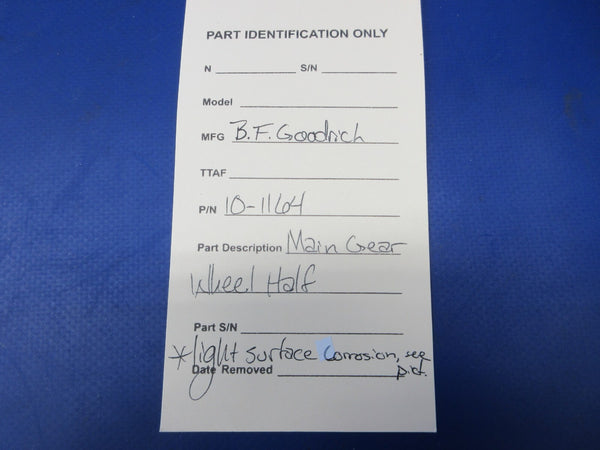 PART IDENTIFICATION ONLY
N S/N
Model
MFG B.F. Goodrich
TTAF
P/N 10-1164
Part Description Main Gear
Wheel Half
Part S/N
*light surface corrosion, see
pict.
Date Removed